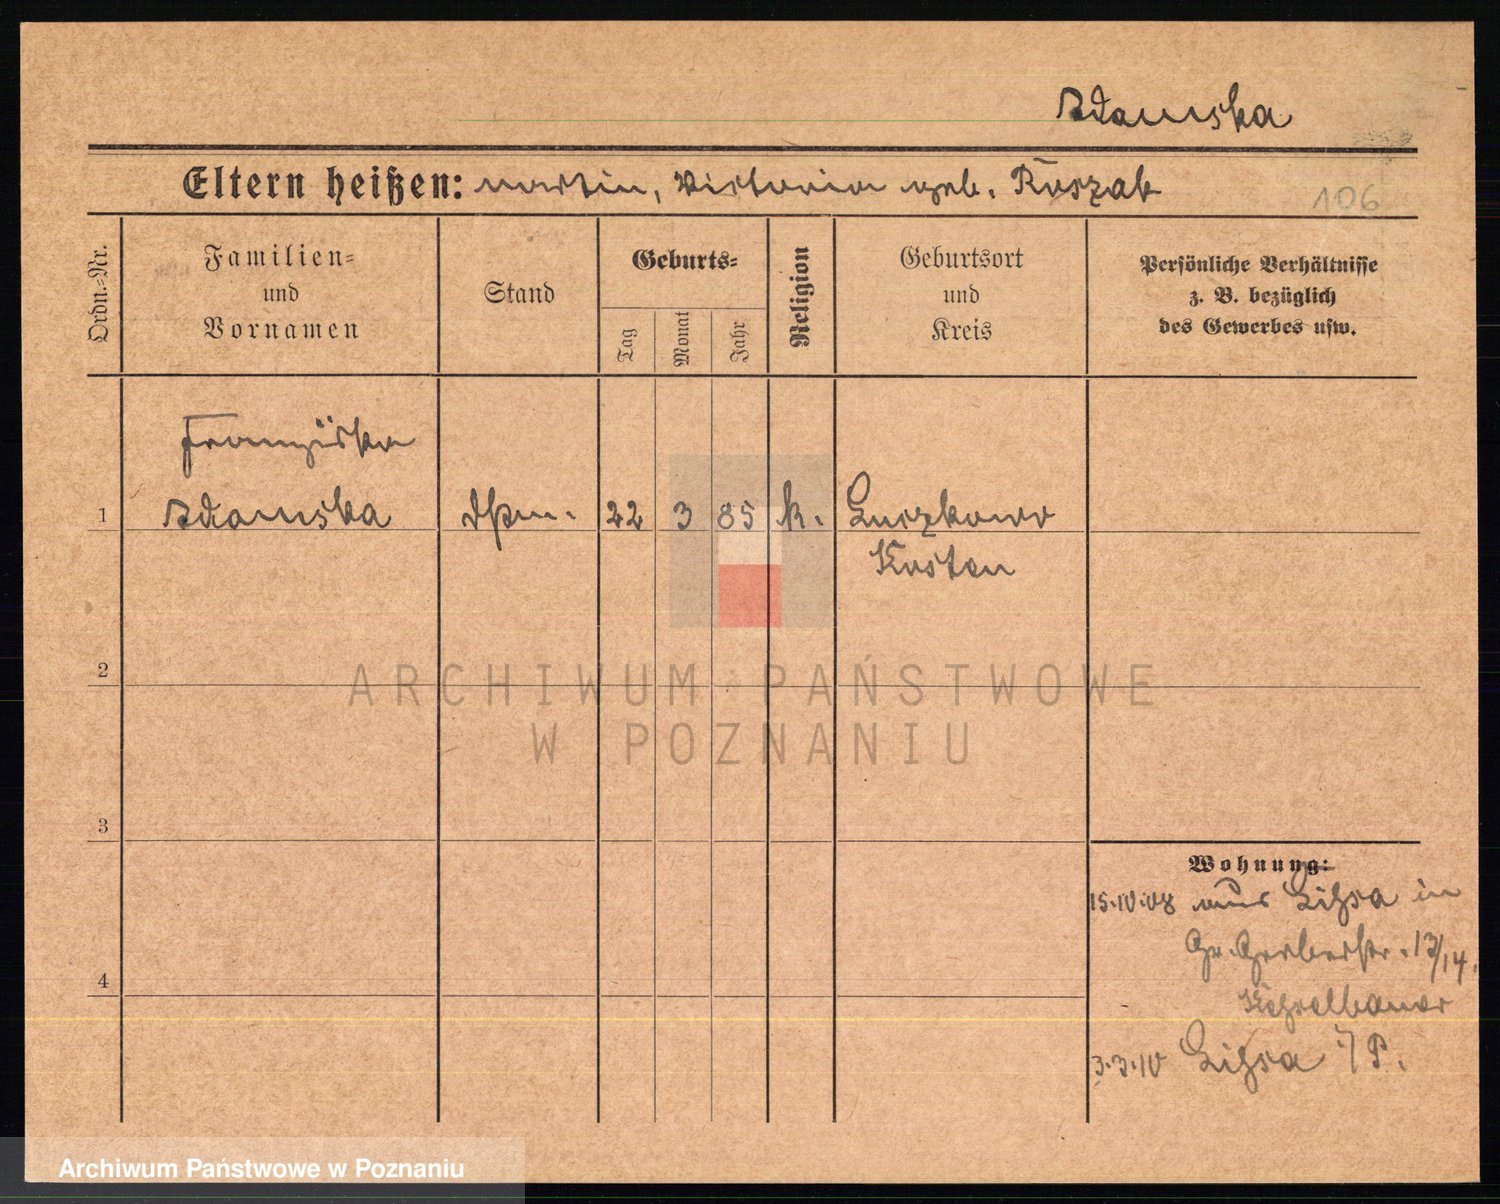 Adamska
Eltern heißen: Martin, Victoria geb. Roszak
106
Ordn.-Nr.
Familien-
und
Vornamen
Stand
Geburts-
Tag
Monat
Jahr
Religion
Geburtsort
und
Kreis
Persönliche Verhältnisse
z. B. bezüglich
des Gewerbes usw.
Franziska
1 Adamska 22 3 85 k.
Kosten
2
3
4
Wohnung:
15.10.08 aus Lissa in
Gr. Gerberstr. 13/14.
3.3.10 Lissa i/P.
ARCHIWUM PAŃSTWOWE
W POZNANIU
Archiwum Państwowe w Poznaniu